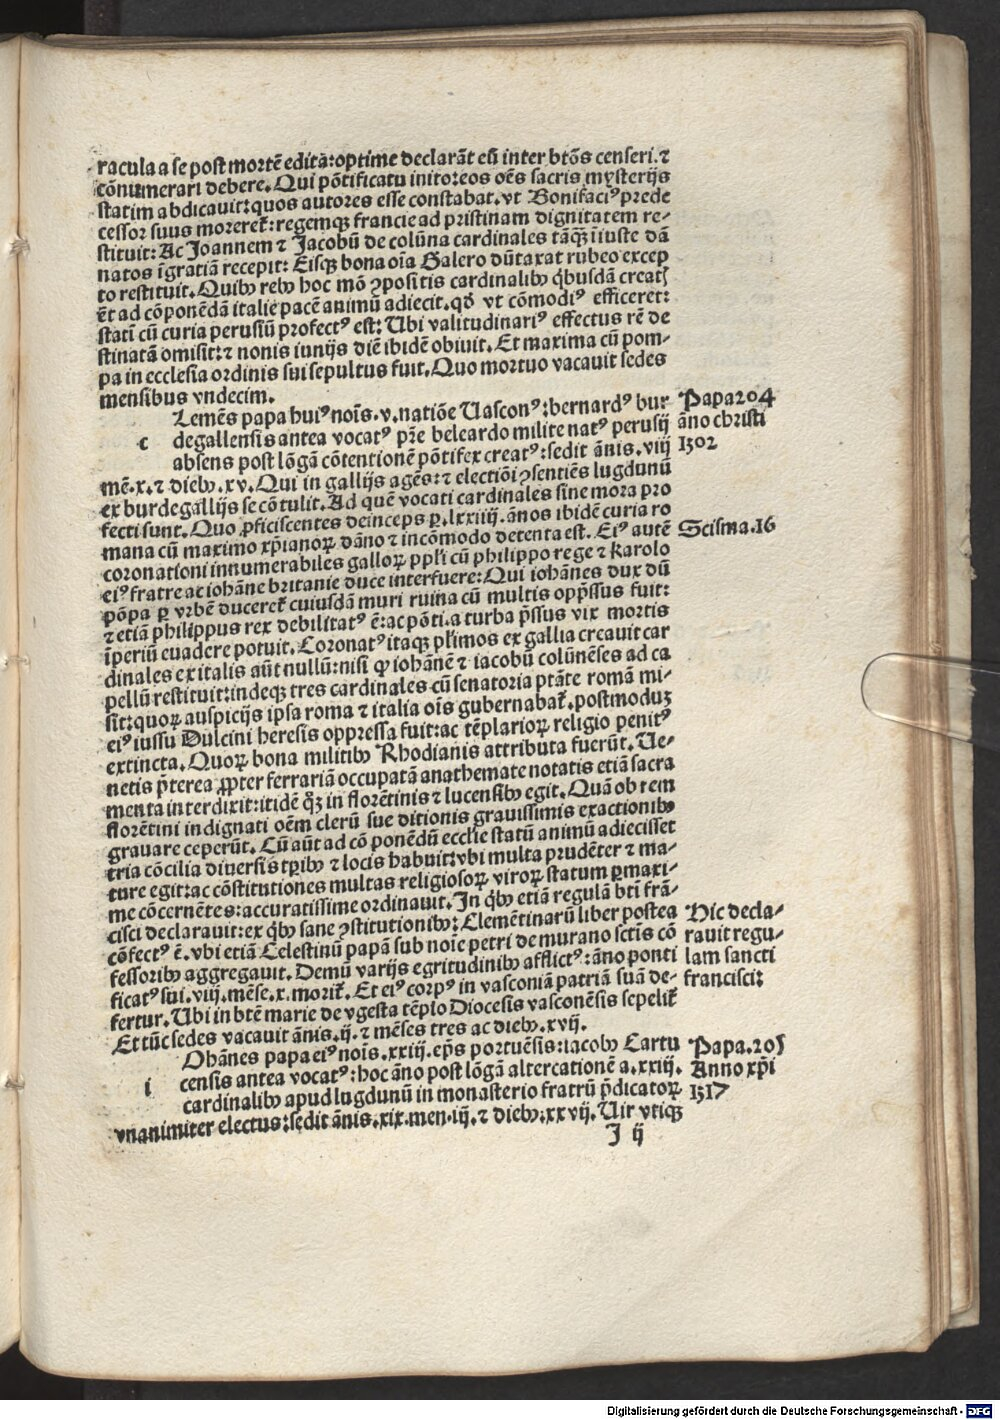 racula a se post mortē edita: optime declarāt eū inter btōs censeri. ⁊
cōnumerari debere. Qui pōtificatu inito: eos oēs sacris mysterijs
statim abdicauit: quos autores esse constabat. vt Bonifaciꝰ prede
cessor suus moreret̄: regemqꝫ francie ad pristinam dignitatem re-
stituit: Ac Joannem ⁊ Jacobū de colūna cardinales tāqꝫ īiuste dā
natos īgratiā recepit: Eisqꝫ bona oīa Galero dūtaxat rubeo excep
to restituit. Quibꝰ rebꝰ hoc mō ꝯpositis cardinalibꝰ qͥbusdā creatꝭ
ēt ad cōponēdā italie pacē animū adiecit. qđ vt cōmodiꝰ efficeret:
statī cū curia perusiū profectꝰ est: Ubi valitudinariꝰ effectus rē de
stinatā omisit: ⁊ nonis iunijs diē ibidē obiuit. Et maxima cū pom-
pa in ecclesia ordinis sui sepultus fuit. Quo mortuo vacauit sedes
mensibus vndecim.
Lemēs papa huiꝰ noīs. v. natiōe Uasconꝰ: bernardꝰ bur
c degallensis antea vocatꝰ pr̄e beleardo milite natꝰ perusij
absens post lōgā cōtentionē pōtifex creatꝰ: sedit ānis. viij
mē. x. ⁊ diebꝰ. xv. Qui in gallijs agēs: ⁊ electiōi ꝯsentiēs lugdunū
ex burdegallijs se cōtulit. Ad quē vocati cardinales sine mora pro
fecti sunt. Quo ꝓficiscentes deinceps ꝑ. lxxiiij. ānos ibidē curia ro
mana cū maximo xp̄ianoꝝ dāno ⁊ incōmodo detenta est. Eiꝰ autē
coronationi innumerabiles galloꝝ pp̄li cū philippo rege ⁊ Karolo
eiꝰ fratre ac iohāne britanie duce interfuere: Qui iohānes dux dū
pōpa ꝑ vrbē duceret̄ cuiusdā muri ruina cū multis opp̄ssus fuit:
⁊ etiā philippus rex debilitatꝰ ē: ac pōti. a turba p̄ssus vix mortis
īperiū euadere potuit. Coronatꝰ itaqꝫ pl̄imos ex gallia creauit car
dinales ex italis aūt nullū: nisi ꝙ iohānē ⁊ iacobū colūnēses ad ca
pellū restituit: indeqꝫ tres cardinales cū senatoria ptāte romā mi-
sit: quoꝝ auspicijs ipsa roma ⁊ italia oīs gubernabat̄. postmoduꝫ
eiꝰ iussu Dulcini heresis oppressa fuit: ac tēplarioꝝ religio penitꝰ
extincta. Quoꝝ bona militibꝰ Rhodianis attributa fuerūt. Ue-
netis p̄terea ꝓpter ferrariā occupatā anathemate notatis etiā sacra
menta interdixit: itidē qͦꝫ in florētinis ⁊ lucensibꝰ egit. Quā ob rem
florētini indignati oēm clerū sue ditionis grauissimis exactionibꝰ
grauare ceperūt. Cū aūt ad cōponēdū ecclīe statū animū adiecisset
tria cōcilia diuersis tꝑibꝰ ⁊ locis habuit: vbi multa prudēter ⁊ ma-
ture egit: ac cōstitutiones multas religiosoꝝ viroꝝ statum ꝑmaxi-
me cōcernētes: accuratissime ordinauit. In qͥbꝰ etiā regulā btī frā-
cisci declarauit: ex qͥbꝰ sane ꝯstitutionibꝰ: Clemētinarū liber postea
cōfectꝰ ē. vbi etiā Celestinū papā sub noīe petri de murano sctīs cō
fessoribꝰ aggregauit. Demū varijs egritudinibꝰ afflictꝰ: āno ponti
ficatꝰ sui. viij. mēse. x. morit̄. Et eiꝰ corpꝰ in vasconiā patriā suā de-
fertur. Ubi in btē marie de vgesta tēplo Diocesis vasconēsis sepelit̄
Et tūc sedes vacauit ānis. ij. ⁊ mēses tres ac diebꝰ. xvij.
Ohānes papa eiꝰ noīs. xxiij. ep̄s portuēsis: iacobꝰ Cartu
i censis antea vocatꝰ: hoc āno post lōgā altercationē a. xxiij.
cardinalibꝰ apud lugdunū in monasterio fratrū p̄dicatoꝝ
vnanimiter electus: sedit ānis. xix. men. iij. ⁊ diebꝰ: xxvij. Uir vtiqꝫ
J ij
Papa 204
āno christi
1302
Scisma. 16
Hic decla-
rauit regu-
lam sancti
francisci:
Papa. 205
Anno xp̄i
1317
Digitalisierung gefördert durch die Deutsche Forschungsgemeinschaft - DFG